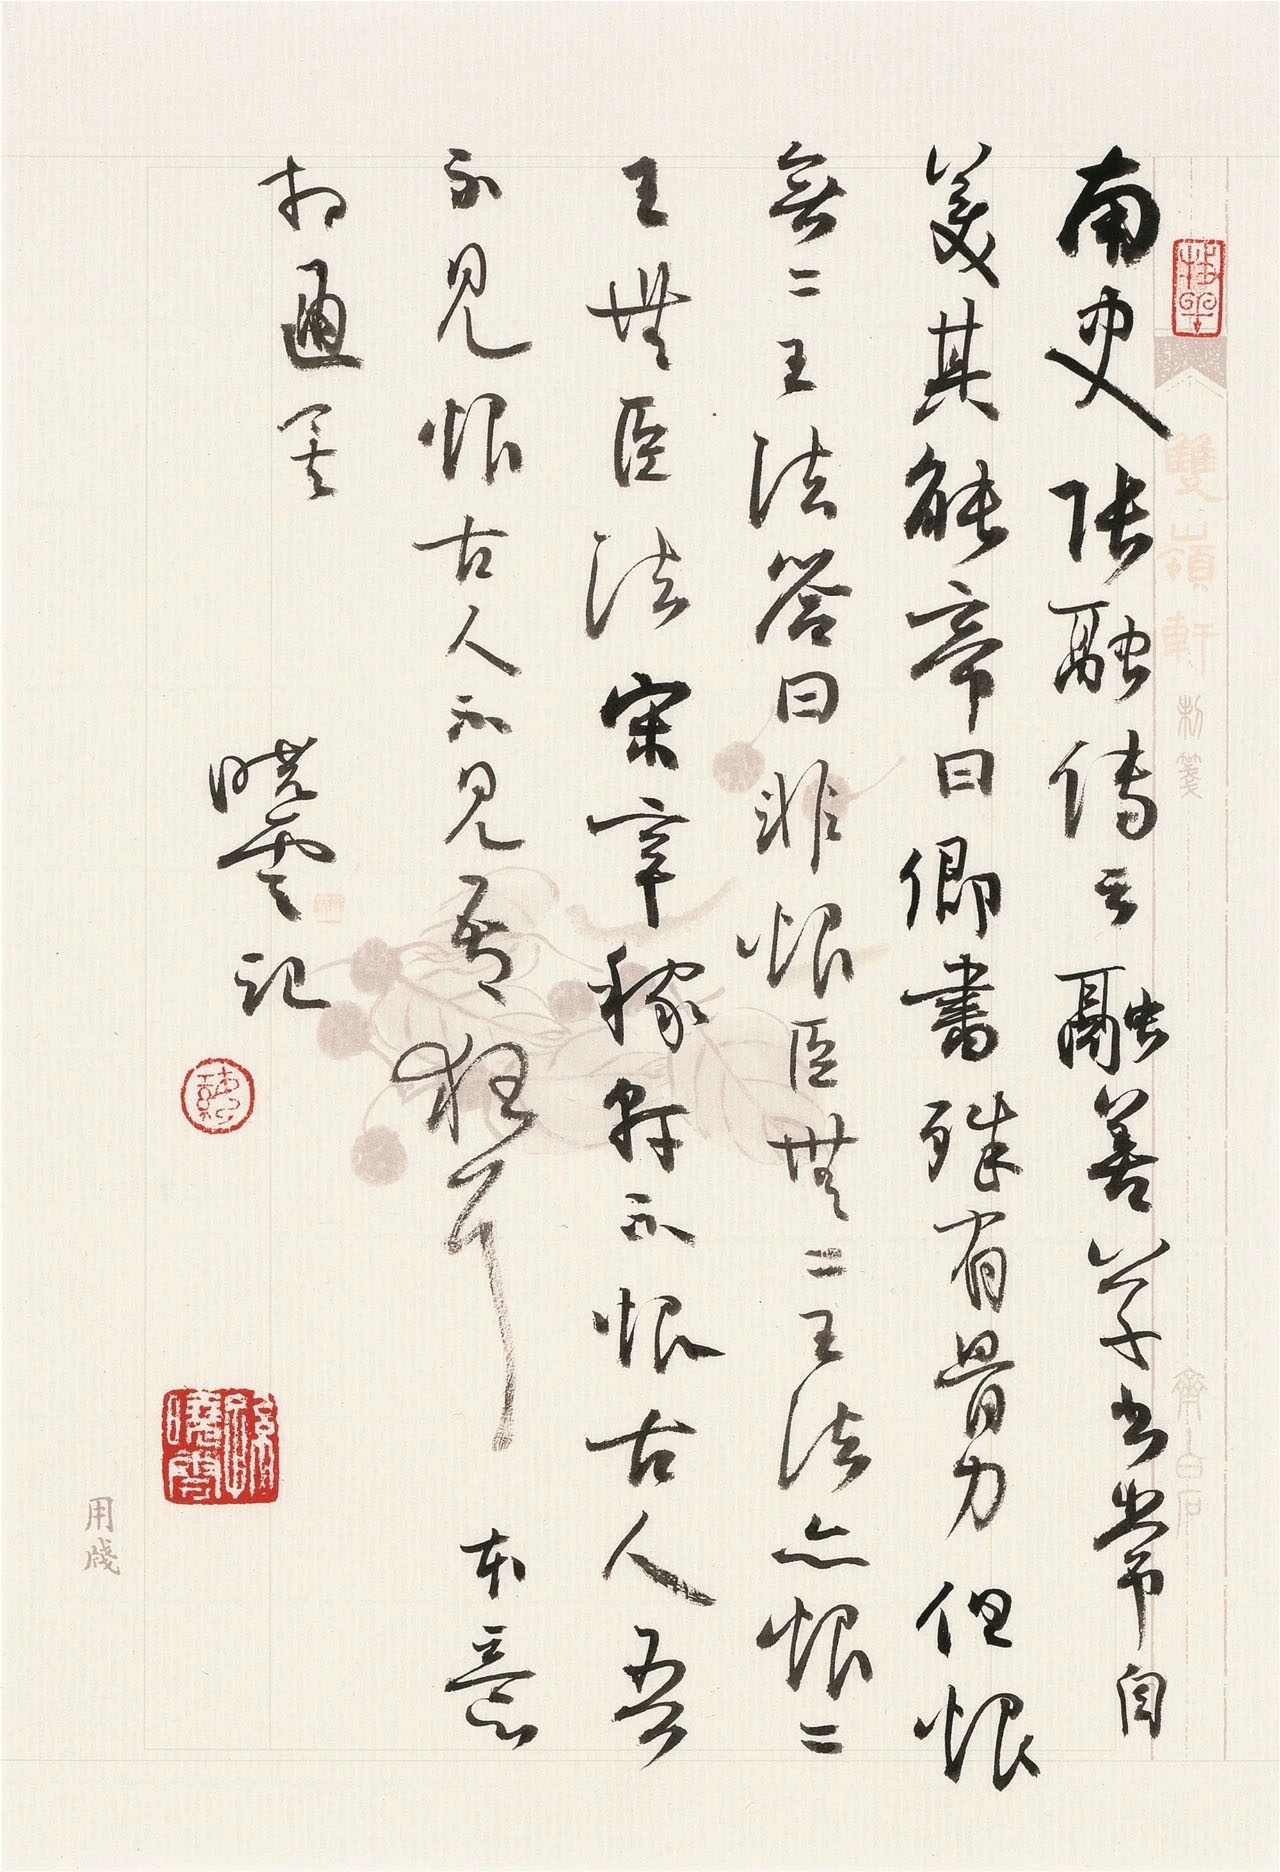 雙嶺軒制箋
齊白石
南史張融傳云融善草书常自
美其能帝曰卿書殊有骨力但恨
無二王法答曰非恨臣無二王法亦恨二
王無臣法宋辛稼軒不恨古人吾
不見恨古人不見吾狂耳 本意
相通矣
曉雲記
孫曉雲
用牋